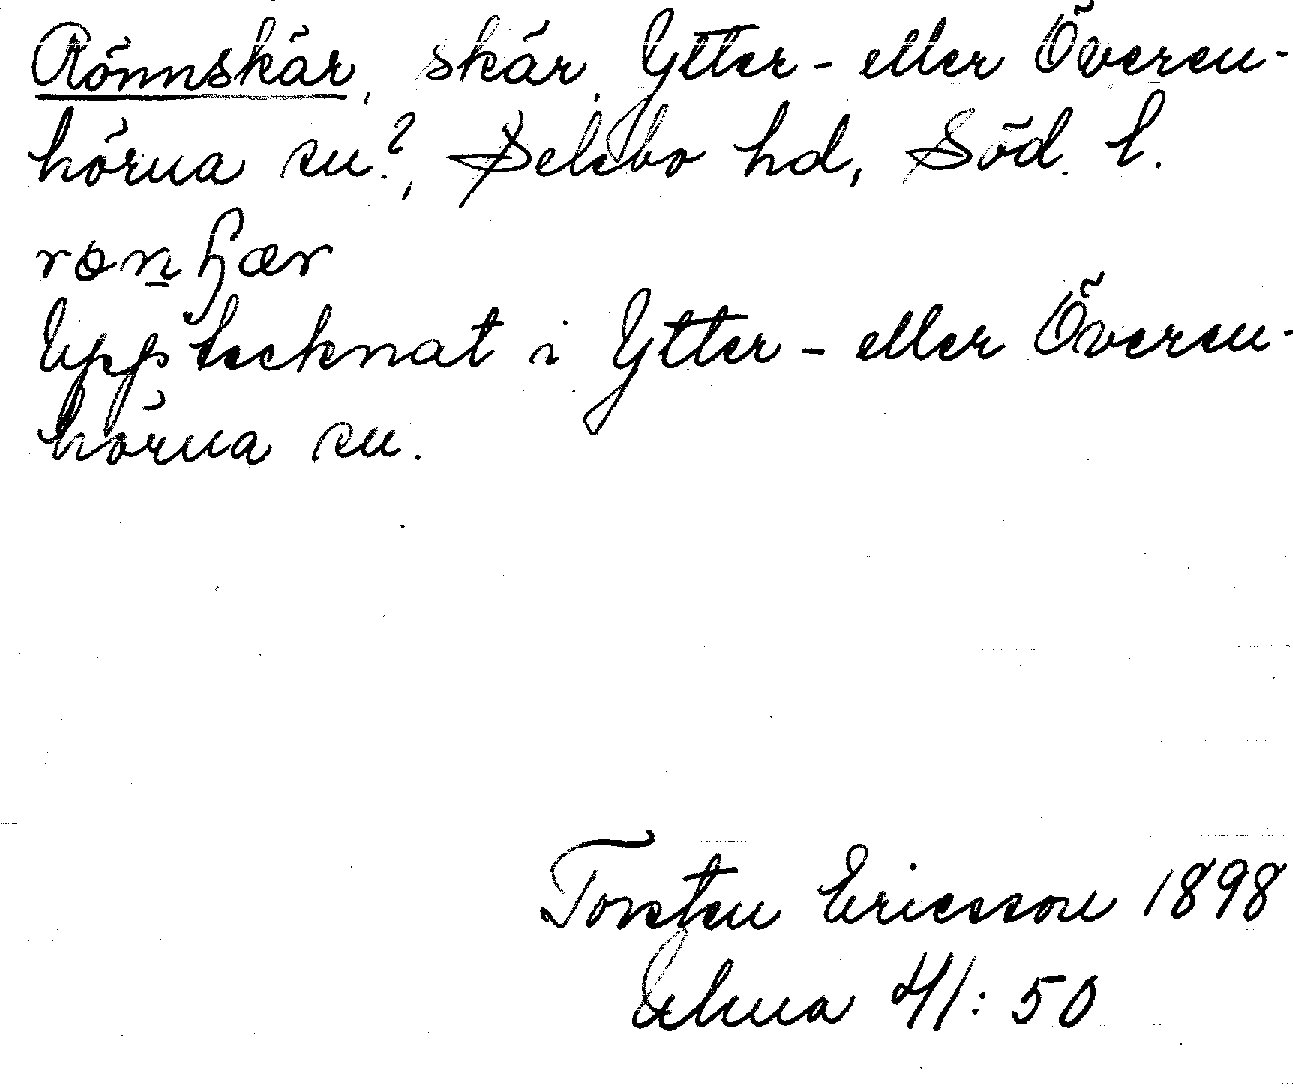 Rönnskär, skär, Ytter- eller Överen-
hörna sn?, Selebo hd, Söd. l.
Upptecknat i Ytter- eller Överen-
hörna sn.
Torsten Ericsson 1898
Ulma 41:50